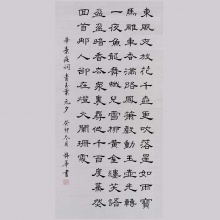 東風夜放花千樹更吹落星如雨寶
馬雕車香滿路鳳簫聲動玉壺光轉
一夜魚龍舞蛾兒雪柳黃金縷笑語
盈盈暗香去衆裏尋他千百度驀然
回首那人卻在燈火闌珊處
辛棄疾詞青玉案元夕 癸卯冬月 華書